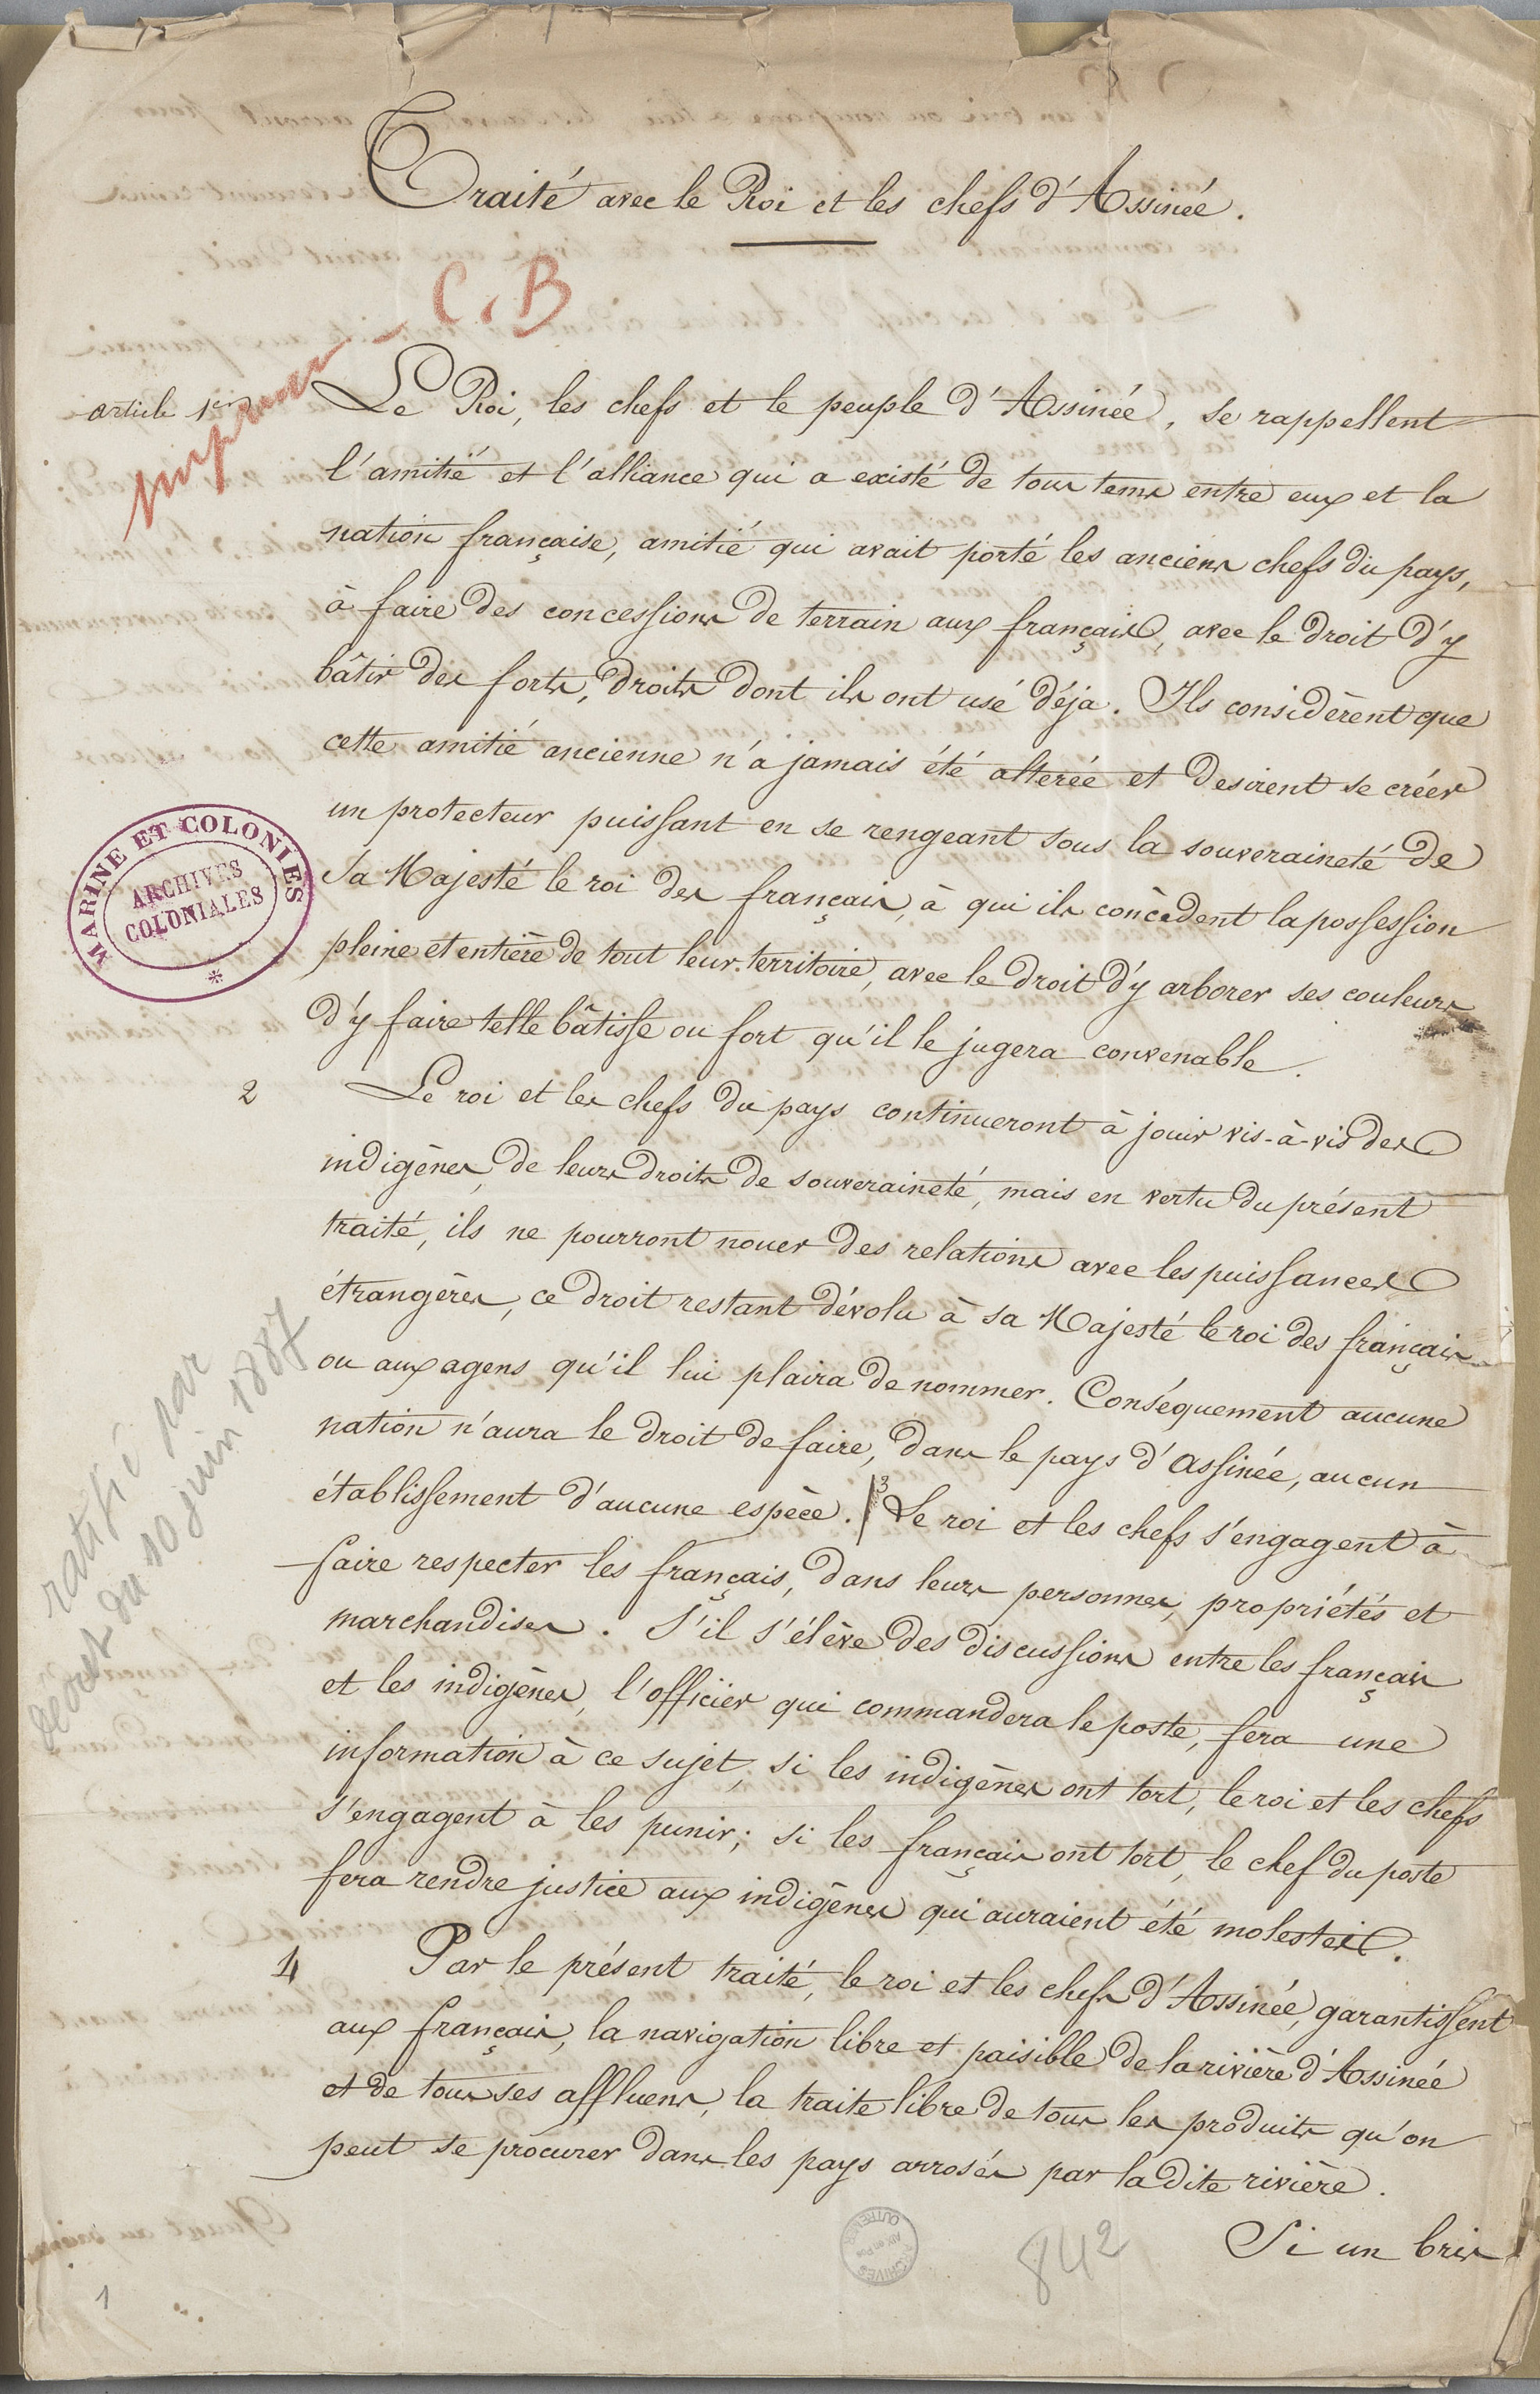 Traité avec le Roi et les chefs d'Assinée.
Imprimer - C. B
article 1er
Le Roi, les chefs et le peuple d'Assinée, se rappellent
l'amitié et l'alliance qui a existé de tous tems entre eux et la
nation française, amitié qui avait porté les anciens chefs du pays,
à faire des concessions de terrain aux français, avec le droit d'y
bâtir des forts, droits dont ils ont usé déja. Ils considèrent que
cette amitié ancienne n'a jamais été alterée et desirent se créer
un protecteur puissant en se rengeant sous la souveraineté de
Sa Majesté le roi des français, à qui ils concèdent la possession
pleine et entière de tout leur territoire, avec le droit d'y arborer ses couleurs
d'y faire telle bâtisse ou fort qu'il le jugera convenable.
MARINE ET COLONIES
ARCHIVES
COLONIALES
2 Le roi et les chefs du pays continueront à jouir vis-à-vis des
indigènes, de leurs droits de souveraineté, mais en vertu du présent
traité, ils ne pourront nouer des relations avec les puissances
étrangères, ce droit restant dévolu à sa Majesté le roi des français
ou aux agens qu'il lui plaira de nommer. Conséquement aucune
nation n'aura le droit de faire, dans le pays d'assinée, aucun
établissement d'aucune espèce. | 3 Le roi et les chefs s'engagent à
faire respecter les français, dans leurs personnes, propriétés et
marchandises. S'il s'élève des discussions entre les français
et les indigènes, l'officier qui commandera le poste, fera une
information à ce sujet, si les indigènes ont tort, le roi et les chefs
s'engagent à les punir; si les français ont tort, le chef du poste
fera rendre justice aux indigènes qui auraient été molestés.
ratifié par
décret du 10 juin 1887
4 Par le présent traité, le roi et les chefs d'Assinée, garantissent
aux français, la navigation libre et paisible de la rivière d'Assinée
et de tous ses affluens, la traite libre de tous les produits qu'on
peut se procurer dans les pays arrosés par la dite rivière.
Si un bris
ARCHIVES
OUTRE-MER
842
1